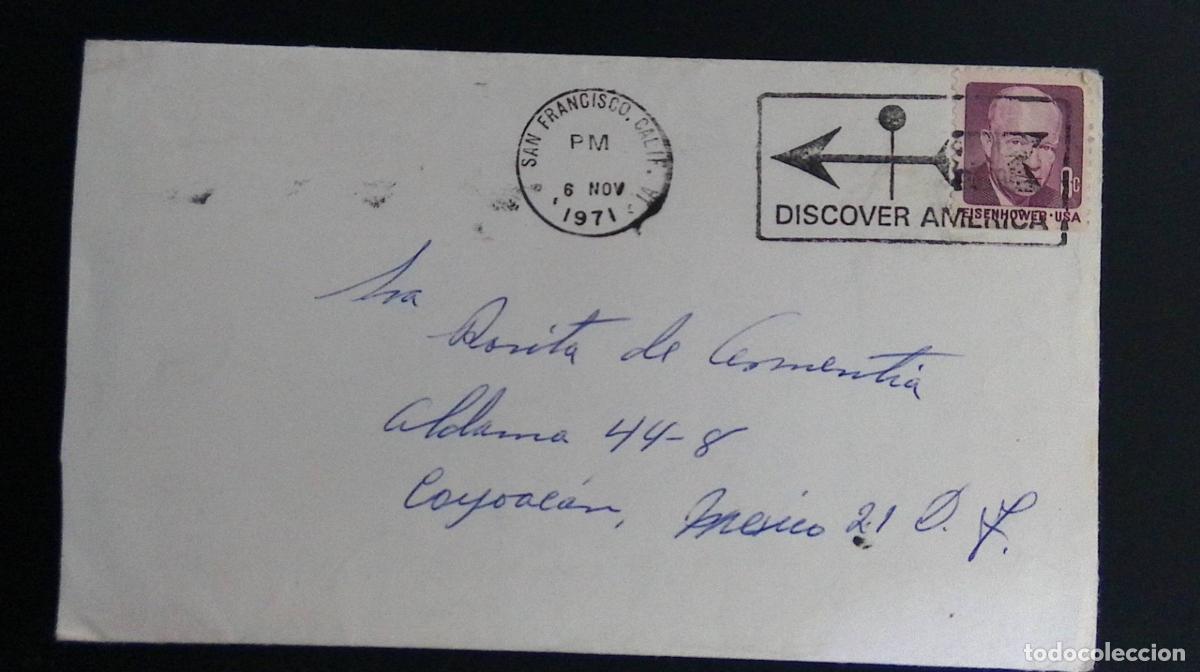 SAN FRANCISCO, CALIF.
PM
6 NOV
1971
1A
DISCOVER AMERICA
8c
EISENHOWER·USA
Sra
Rosita de Armentia
Aldama 44-8
Coyoacán, México 21 D. F.
todocoleccion